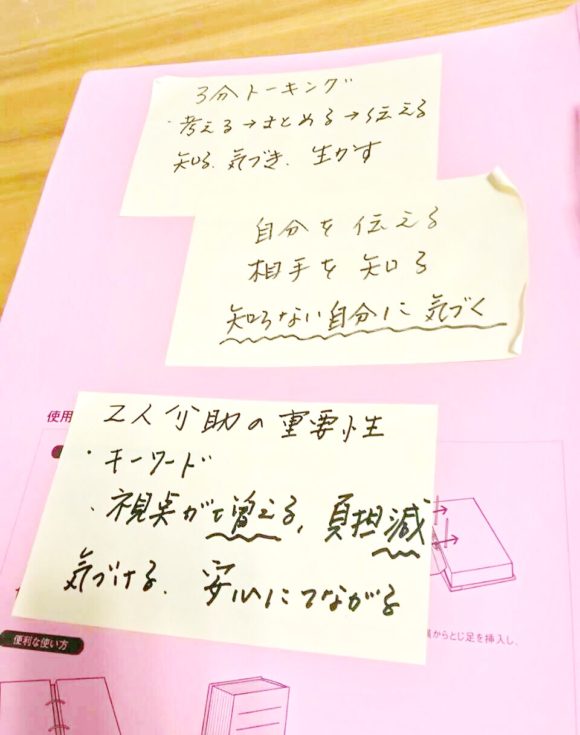 3分トーキング
・考える→まとめる→伝える
知る、気づき、生かす
自分を伝える
相手を知る
知らない自分に気づく
2人介助の重要性
・キーワード
・視点が増える、負担減
気づける、安心につながる
使用
からとじ足を挿入し、
便利な使い方